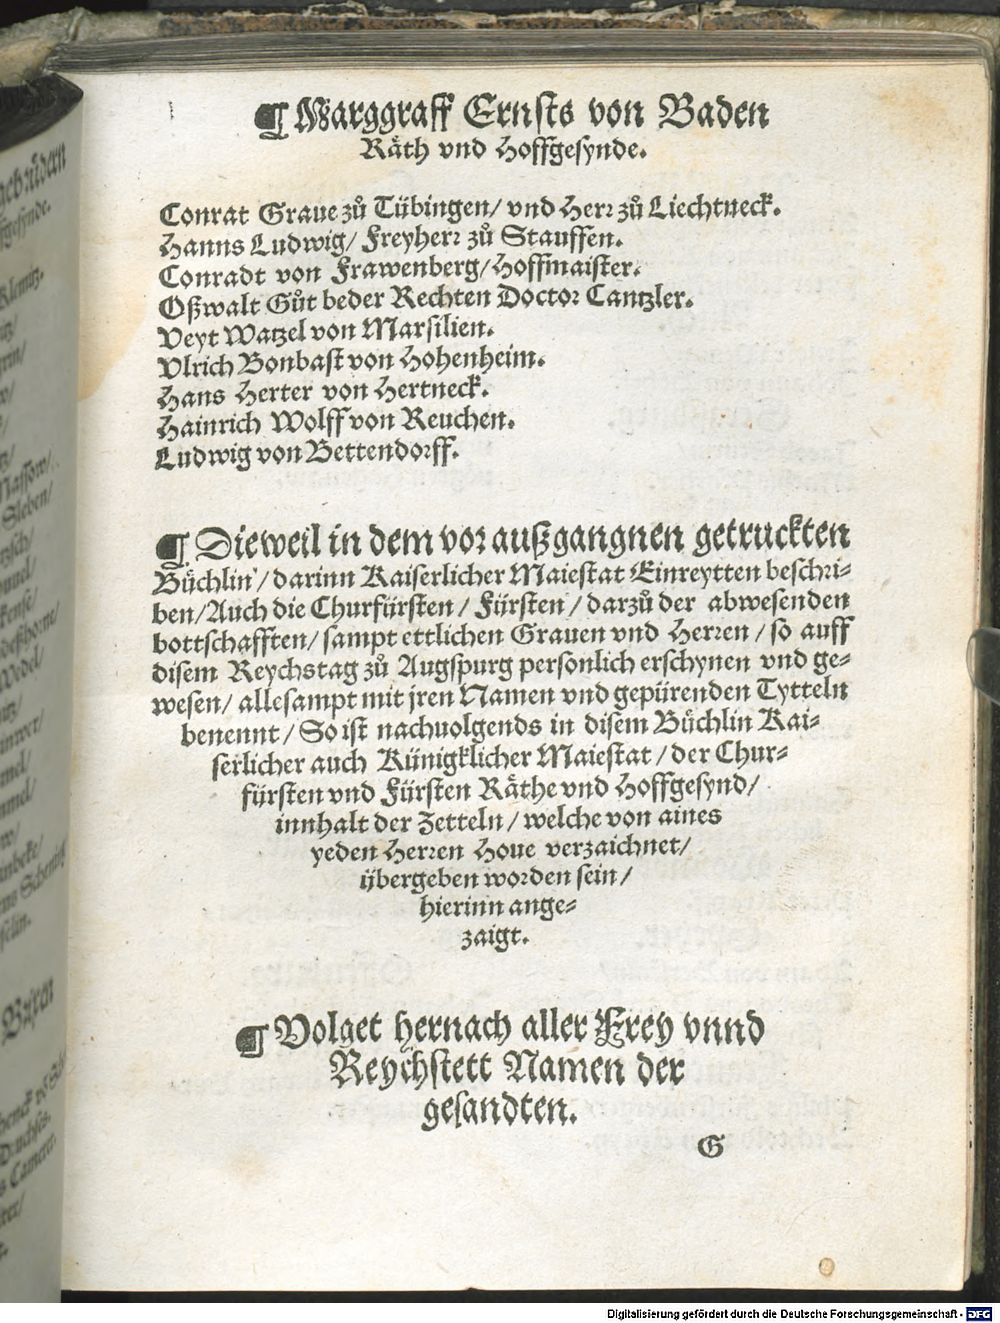 ¶ Marggraff Ernsts von Baden
Räth vnd Hoffgesynde.
Conrat Graue zů Tübingen/ vnd Herr zů Liechtneck.
Hanns Ludwig/ Freyherr zů Stauffen.
Conradt von Frawenberg/ Hoffmaister.
Oßwalt Gůt beder Rechten Doctor Cantzler.
Veyt Watzel von Marsilien.
Vlrich Bonbast von Hohenheim.
Hans Herter von Hertneck.
Hainrich Wolff von Reuchen.
Ludwig von Bettendorff.
¶ Dieweil in dem vor außgangnen getruckten
Büchlin/ darinn Kaiserlicher Maiestat Einreytten beschri-
ben/ Auch die Churfürsten/ Fürsten/ darzů der abwesenden
bottschafften/ sampt ettlichen Grauen vnd Herren/ so auff
disem Reychstag zů Augspurg personlich erschynen vnd ge-
wesen/ allesampt mit jren Namen vnd gepürenden Tytteln
benennt/ So ist nachuolgends in disem Büchlin Kai-
serlicher auch Künigklicher Maiestat/ der Chur-
fürsten vnd Fürsten Räthe vnd Hoffgesynd/
innhalt der Zetteln/ welche von aines
yeden Herren Houe verzaichnet/
übergeben worden sein/
hierinn ange-
zaigt.
¶ Volget hernach aller Frey vnnd
Reychstett Namen der
gesandten.
G
Digitalisierung gefördert durch die Deutsche Forschungsgemeinschaft - DFG